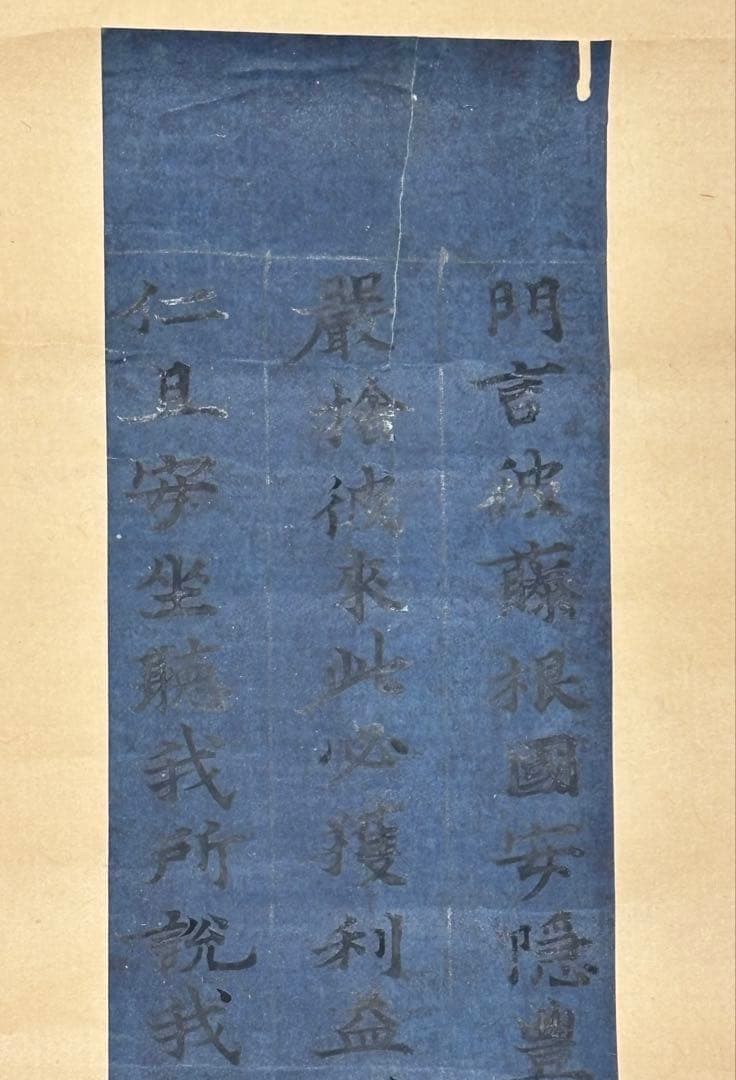 門言彼藤根國安隠豊
嚴捨彼來此必獲利益
仁且安坐聽我所説我